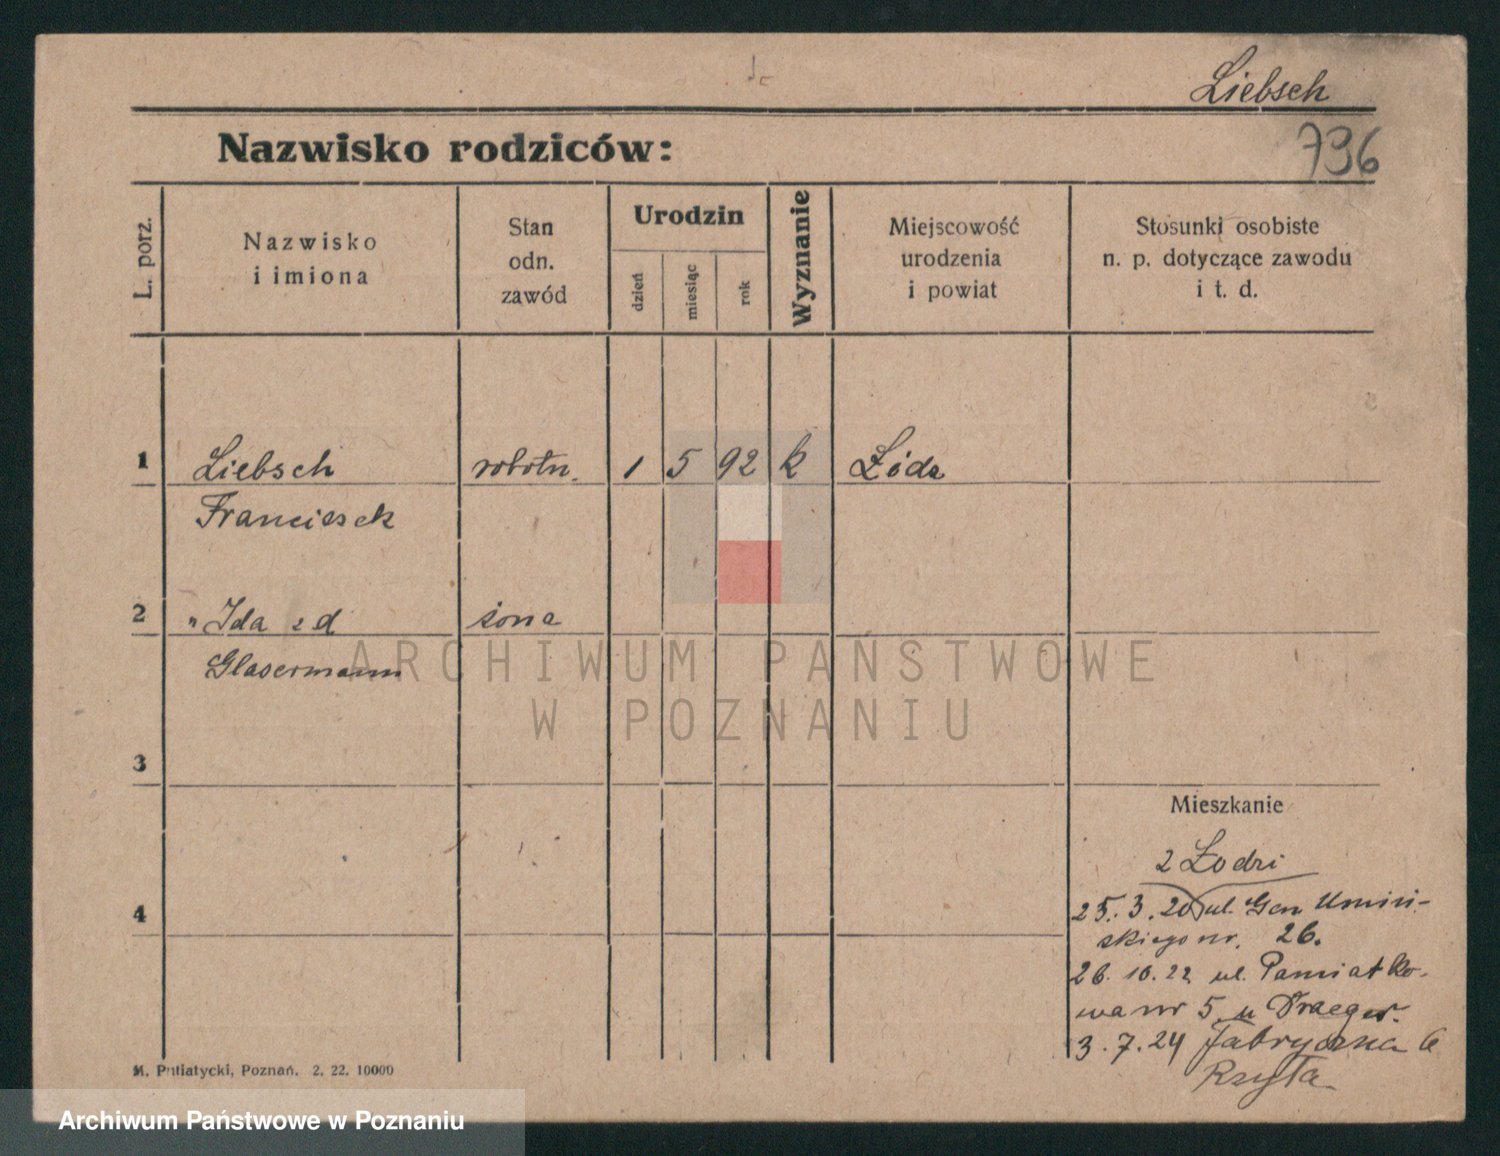 Liebsch
796
Nazwisko rodziców:
L. porz.
Nazwisko
i imiona
Stan
odn.
zawód
Urodzin
dzień
miesiąc
rok
Wyznanie
Miejscowość
urodzenia
i powiat
Stosunki osobiste
n. p. dotyczące zawodu
i t. d.
1 Liebsch robotn. 1 5 92 k Łódź
Franciszek
2 " Ida z d żona
Glasermann
3
4
Mieszkanie
z Łodzi
25.3.20 ul. Gen Umiń-
skiego nr. 26.
26.10.22 ul. Pamiatko-
wa nr 5 u Draeger.
3.7.24 Fabryczna 6
ARCHIWUM PAŃSTWOWE
W POZNANIU
M. Putiatycki, Poznań. 2. 22. 10000
Archiwum Państwowe w Poznaniu